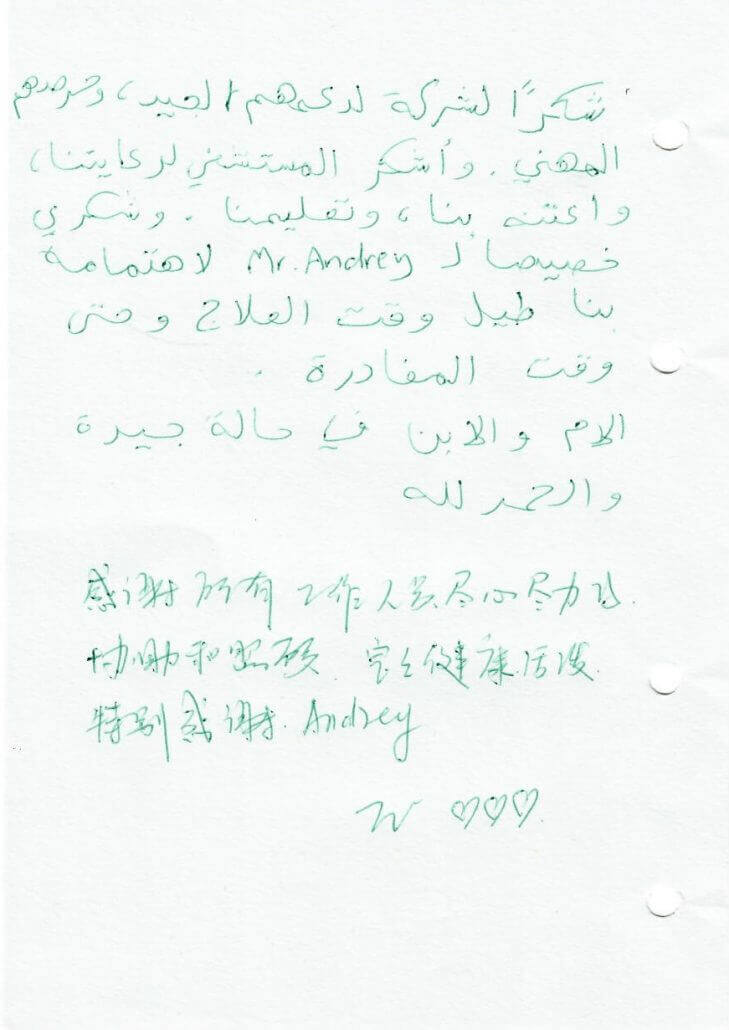 شكرًا لشركة لدعمهم الجيد، وحرصهم
المهني. وأشكر المستشفى لرعايتنا،
واعتنه بنا، وتعليمنا. وشكري
خصيصا لـ Mr. Andrey لاهتمامه
بنا طيل وقت العلاج وحتى
وقت المغادرة.
الام والابن في حالة جيدة
والحمد لله
感谢所有工作人员尽心尽力的
协助和照顾 宝宝健康活泼
特别感谢. Andrey
♡♡♡